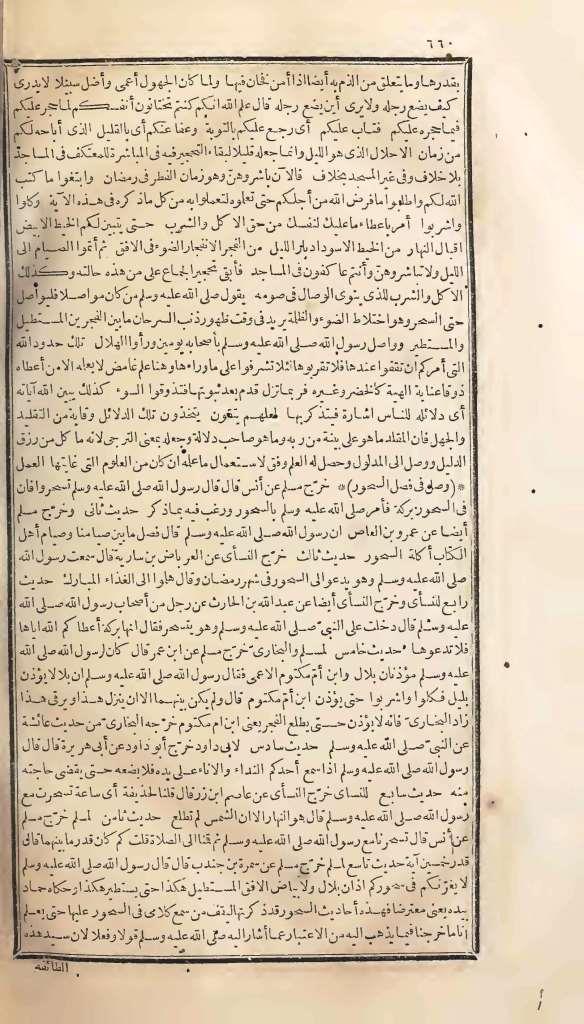 ٦٦٠
بقدرها وما يتعلق من الذم به أيضا اذا أمن فخان فيها ولما كان الجهول أعمى وأضل سبيلا لا يدرى
كيف يضع رجله ولا يرى أين يضع رجله قال علم الله انكم كنتم تختانون أنفسكم لما حجر عليكم
فيما حجره عليكم فتاب عليكم أى رجع عليكم بالتوبة وعفا عنكم أى بالقليل الذى أباحه لكم
من زمان الاحلال الذى هو الليل وانما جعله قليلا لبقاء التحجير فيه فى المباشرة للمعتكف فى المساجد
بلا خلاف وفى غير المسجد بخلاف فالآن باشروهن وهو زمان الفطر فى رمضان وابتغوا ما كتب
الله لكم واطلبوا ما فرض الله من أجلكم حتى تعلموه لتعملوا به من كل ماذكره فى هذه الآية وكلوا
واشربوا أمر باعطاء ما عليك لنفسك من حق الاكل والشرب حتى يتبين لكم الخيط الابيض
اقبال النهار من الخيط الاسود ادبار الليل من الفجر الانفجار الضوء فى الافق ثم أتموا الصيام الى
الليل ولا تباشروهن وأنتم عاكفون فى المساجد فأبقى تحجير الجماع على من هذه حالته وكذلك
الاكل والشرب للذى ينوى الوصال فى صومه يقول صلى الله عليه وسلم من كان مواصلا فليواصل
حتى السحر وهو اختلاط الضوء والظلمة يريد فى وقت ظهور ذنب السرحان ما بين الفجرين المستطيل
والمستطير وواصل رسول الله صلى الله عليه وسلم بأصحابه يومين ورأوا الهلال تلك حدود الله
التى أمركم أن تقفوا عندها فلا تقربوها لئلا تشرفوا على ما وراءها وهنا علم غامض لا يعلمه الا من أعطاه
ذوقا عناية الهية كالخضر وغيره فربما تزل قدم بعد ثبوتها فتذوقوا السوء كذلك يبين الله آياته
أى دلائله للناس اشارة فيتذكر بها لعلهم يتقون يتخذون تلك الدلائل وقاية من التقليد
والجهل فان المقلد ما هو على بينة من ربه وما هو صاحب دلالة وجعله بمعنى الترجى لانه ما كل من رزق
الدليل ووصل الى المدلول وحصل له العلم وفق لاستعمال ما علمه ان كان من العلوم التى غايتها العمل
*(وصل فى فصل السحور)* خرج مسلم عن أنس قال قال رسول الله صلى الله عليه وسلم تسحروا فان
فى السحور بركة فأمر صلى الله عليه وسلم بالسحور ورغب فيه بما ذكر حديث ثانى وخرج مسلم
أيضا عن عمرو بن العاص ان رسول الله صلى الله عليه وسلم قال فصل ما بين صيامنا وصيام أهل
الكتاب أكلة السحور حديث ثالث خرج النسأى عن العرباض بن سارية قال سمعت رسول الله
صلى الله عليه وسلم وهو يدعو الى السحور فى شهر رمضان وقال هلموا الى الغذاء المبارك حديث
رابع للنسأى وخرج النسأى أيضا عن عبد الله بن الحارث عن رجل من أصحاب رسول الله صلى الله
عليه وسلم قال دخلت على النبى صلى الله عليه وسلم وهو يتسحر فقال انها بركة أعطاكم الله اياها
فلا تدعوها حديث خامس لمسلم والبخارى خرج مسلم عن ابن عمر قال كان لرسول الله صلى الله
عليه وسلم مؤذنان بلال وابن أم مكتوم الاعمى فقال رسول الله صلى الله عليه وسلم ان بلالا يؤذن
بليل فكلوا واشربوا حتى يؤذن ابن أم مكتوم قال ولم يكن بينهما الا ان ينزل هذا ويرقى هذا
زاد البخارى فانه لا يؤذن حتى يطلع الفجر يعنى ابن ام مكتوم خرجه البخارى من حديث عائشة
عن النبى صلى الله عليه وسلم حديث سادس لابى داود خرج أبو داود عن أبى هريرة قال قال
رسول الله صلى الله عليه وسلم اذا سمع أحدكم النداء والاناء على يده فلا يضعه حتى يقضى حاجته
منه حديث سابع للنسأى خرج النسأى عن عاصم ابن زر قال قلنا لحذيفة أى ساعة تسحرت مع
رسول الله صلى الله عليه وسلم قال هو النهار الا ان الشمس لم تطلع حديث ثامن لمسلم خرج مسلم
عن أنس قال تسحرنا مع رسول الله صلى الله عليه وسلم ثم قمنا الى الصلاة قلت كم كان قدر ما بينهما قال
قدر خمسين آية حديث تاسع لمسلم خرج مسلم عن سمرة بن جندب قال قال رسول الله صلى الله عليه وسلم
لا يغرنكم فى سحوركم اذان بلال ولا بياض الافق المستطيل هكذا حتى يستطير هكذا وحكاه حماد
بيده يعنى معترضا فهذه أحاديث السحور قد ذكرتها ليقف من سمع كلامى فى السحور عليها حتى يعلم
انا ما خرجنا فيما يذهب اليه من الاعتبار عما أشار اليه صلى الله عليه وسلم قولا وفعلا لان سيد هذه
الطائفة